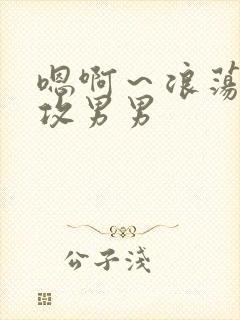 嗯啊～浪荡
攻男男
公子浅